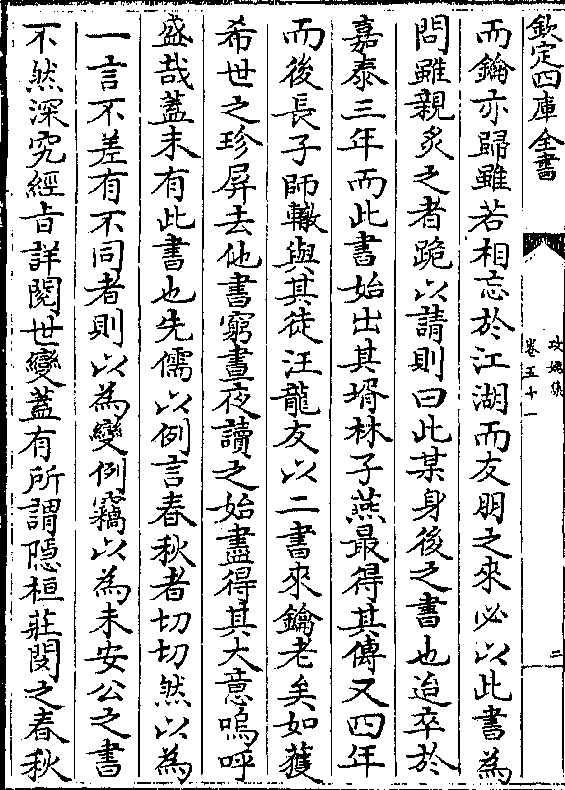 欽定四庫全書
攻媿集
卷五十一
二
而鑰亦歸雖若相忘於江湖而友朋之來必以此書為
問雖親炙之者跪以請則曰此某身後之書也迨卒於
嘉泰三年而此書始出其壻林子燕最得其傳又四年
而後長子師轍與其徒汪龍友以二書來鑰老矣如獲
希世之珍屏去他書窮晝夜讀之始盡得其大意嗚呼
盛哉蓋未有此書也先儒以例言春秋者切切然以為
一言不差有不同者則以為變例竊以為未安公之書
不然深究經旨詳閱世變蓋有所謂隐桓莊閔之春秋